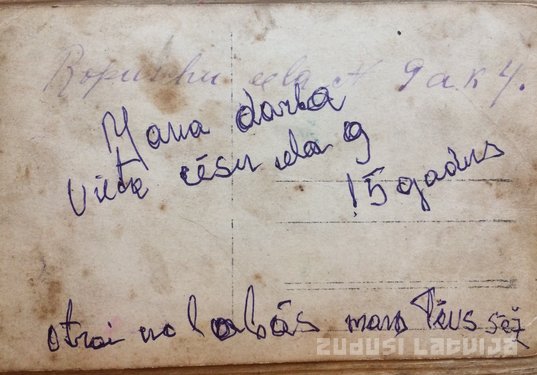 iela 9 a k 4.
Mana darba
vieta cēsu iela 9
15 gadus
otrai no labās mans Tēvs sēž
ZUDUSI LATVIJA